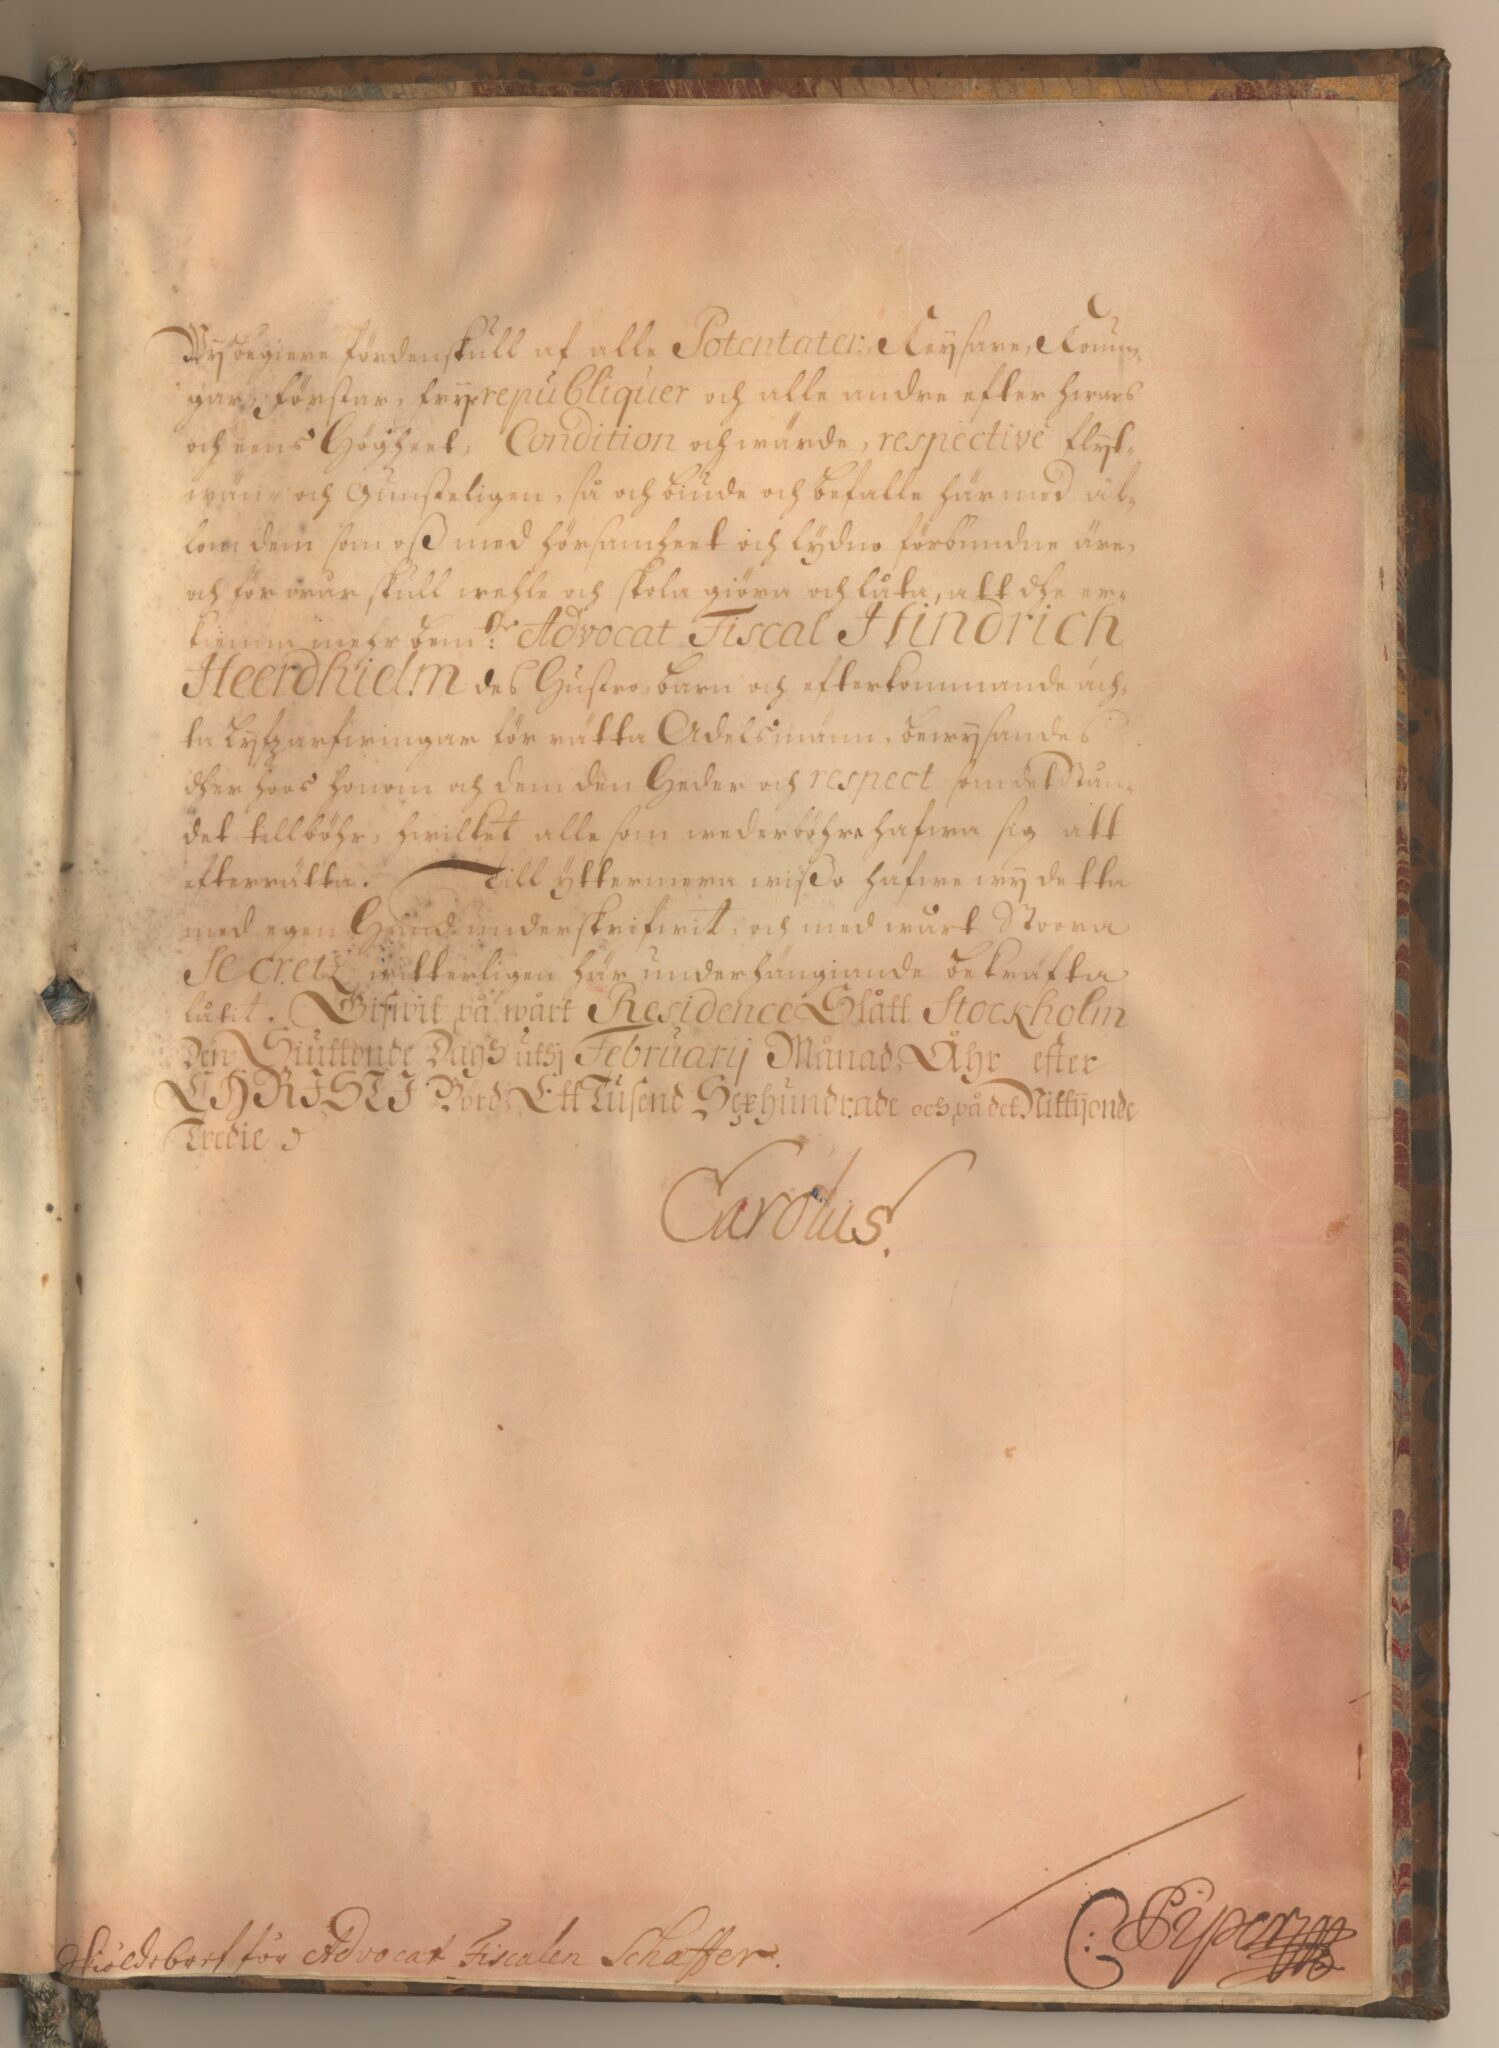 Wy begiere fördenskull af alle Potentater, Keysare, Konun-
gar, Förstar, fryerepubliquer och alle andre efter hwars
och eens Högheet, Condition och wärde, respective flyt-
wän- och Gunsteligen, så och biude och befalle härmed al-
lom dem som oß med hörsamheet och lydno förbundne äre,
och för wår skull wehle och skola giöra och låta, att dhe er-
kienna mehr bem:te Advocat Fiscal Hindrich
Heerdhielm des Hustro, barn och efterkommande äch-
ta Lyfzarfwingar för rätta Adelsmänn, bewysandes
dher hoos honom och dem den Heder och respect som det Stån-
det tillböhr, hwilket alle som wederböhre hafwa sig att
efterrätta. Till yttermera wißo hafwe wy detta
med egen Hand underskrifwit, och med wårt Stoora
Secretz witterligen här underhängiande bekräfta
låtit. Gifwit på wårt Residence Slått Stockholm
Den Siuttonde Dagh uthj Februarij Månad, Åhr efter
CHRISTI Börd, Ett Tusend Sexhundrade och på det Nittijonde
Tredie
Carolus.
C: Piper
Skiöldebref för Advocat Fiscalen Schaffer.